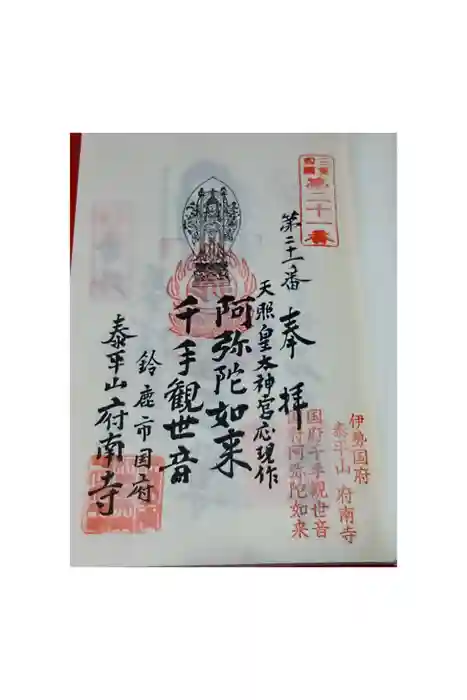 三重
四國
第二十一番
第二十一番 奉拝
天照皇太神宮応現作
阿弥陀如来
千手観世音
鈴鹿市国府
泰平山 府南寺
伊勢国府
泰平山 府南寺
国府千手観世音
国府阿弥陀如来